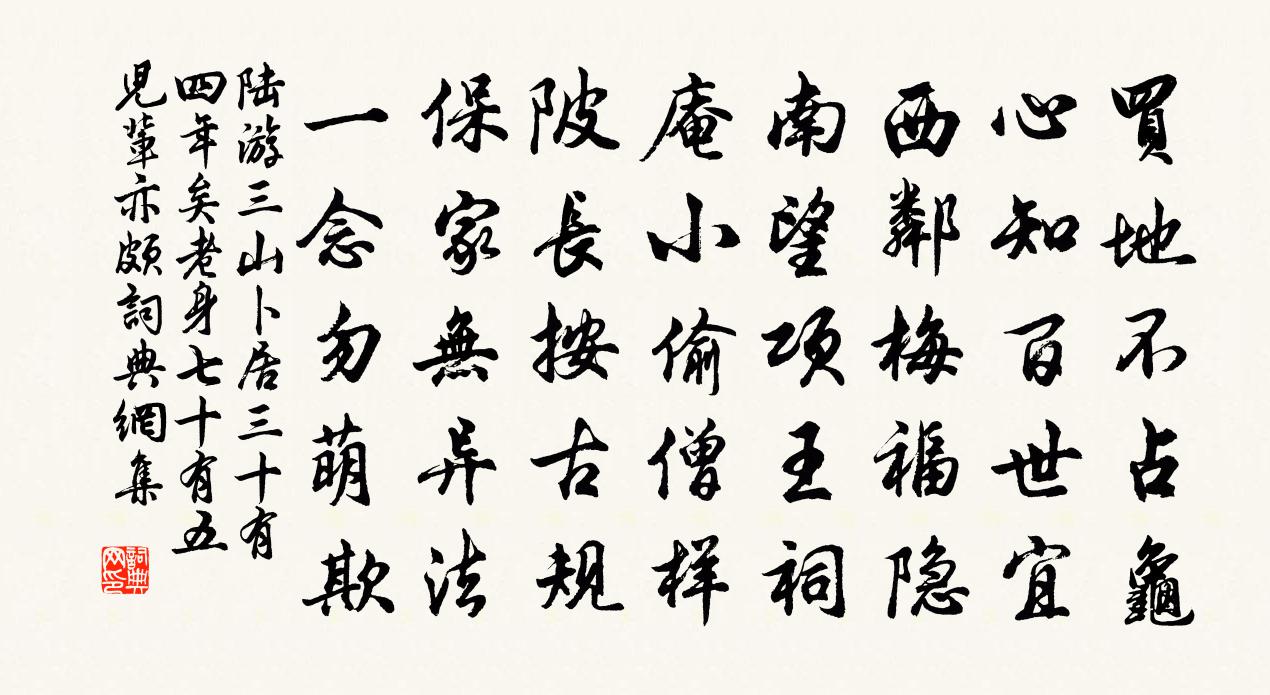 買地不占龜
心知百世宜
西鄰梅福隐
南望項王祠
庵小偷僧样
陂長按古規
保家無异法
一念勿萌欺
陆游三山卜居三十有
四年矣老身七十有五
児輩亦頗詞典網集
詞典
网印